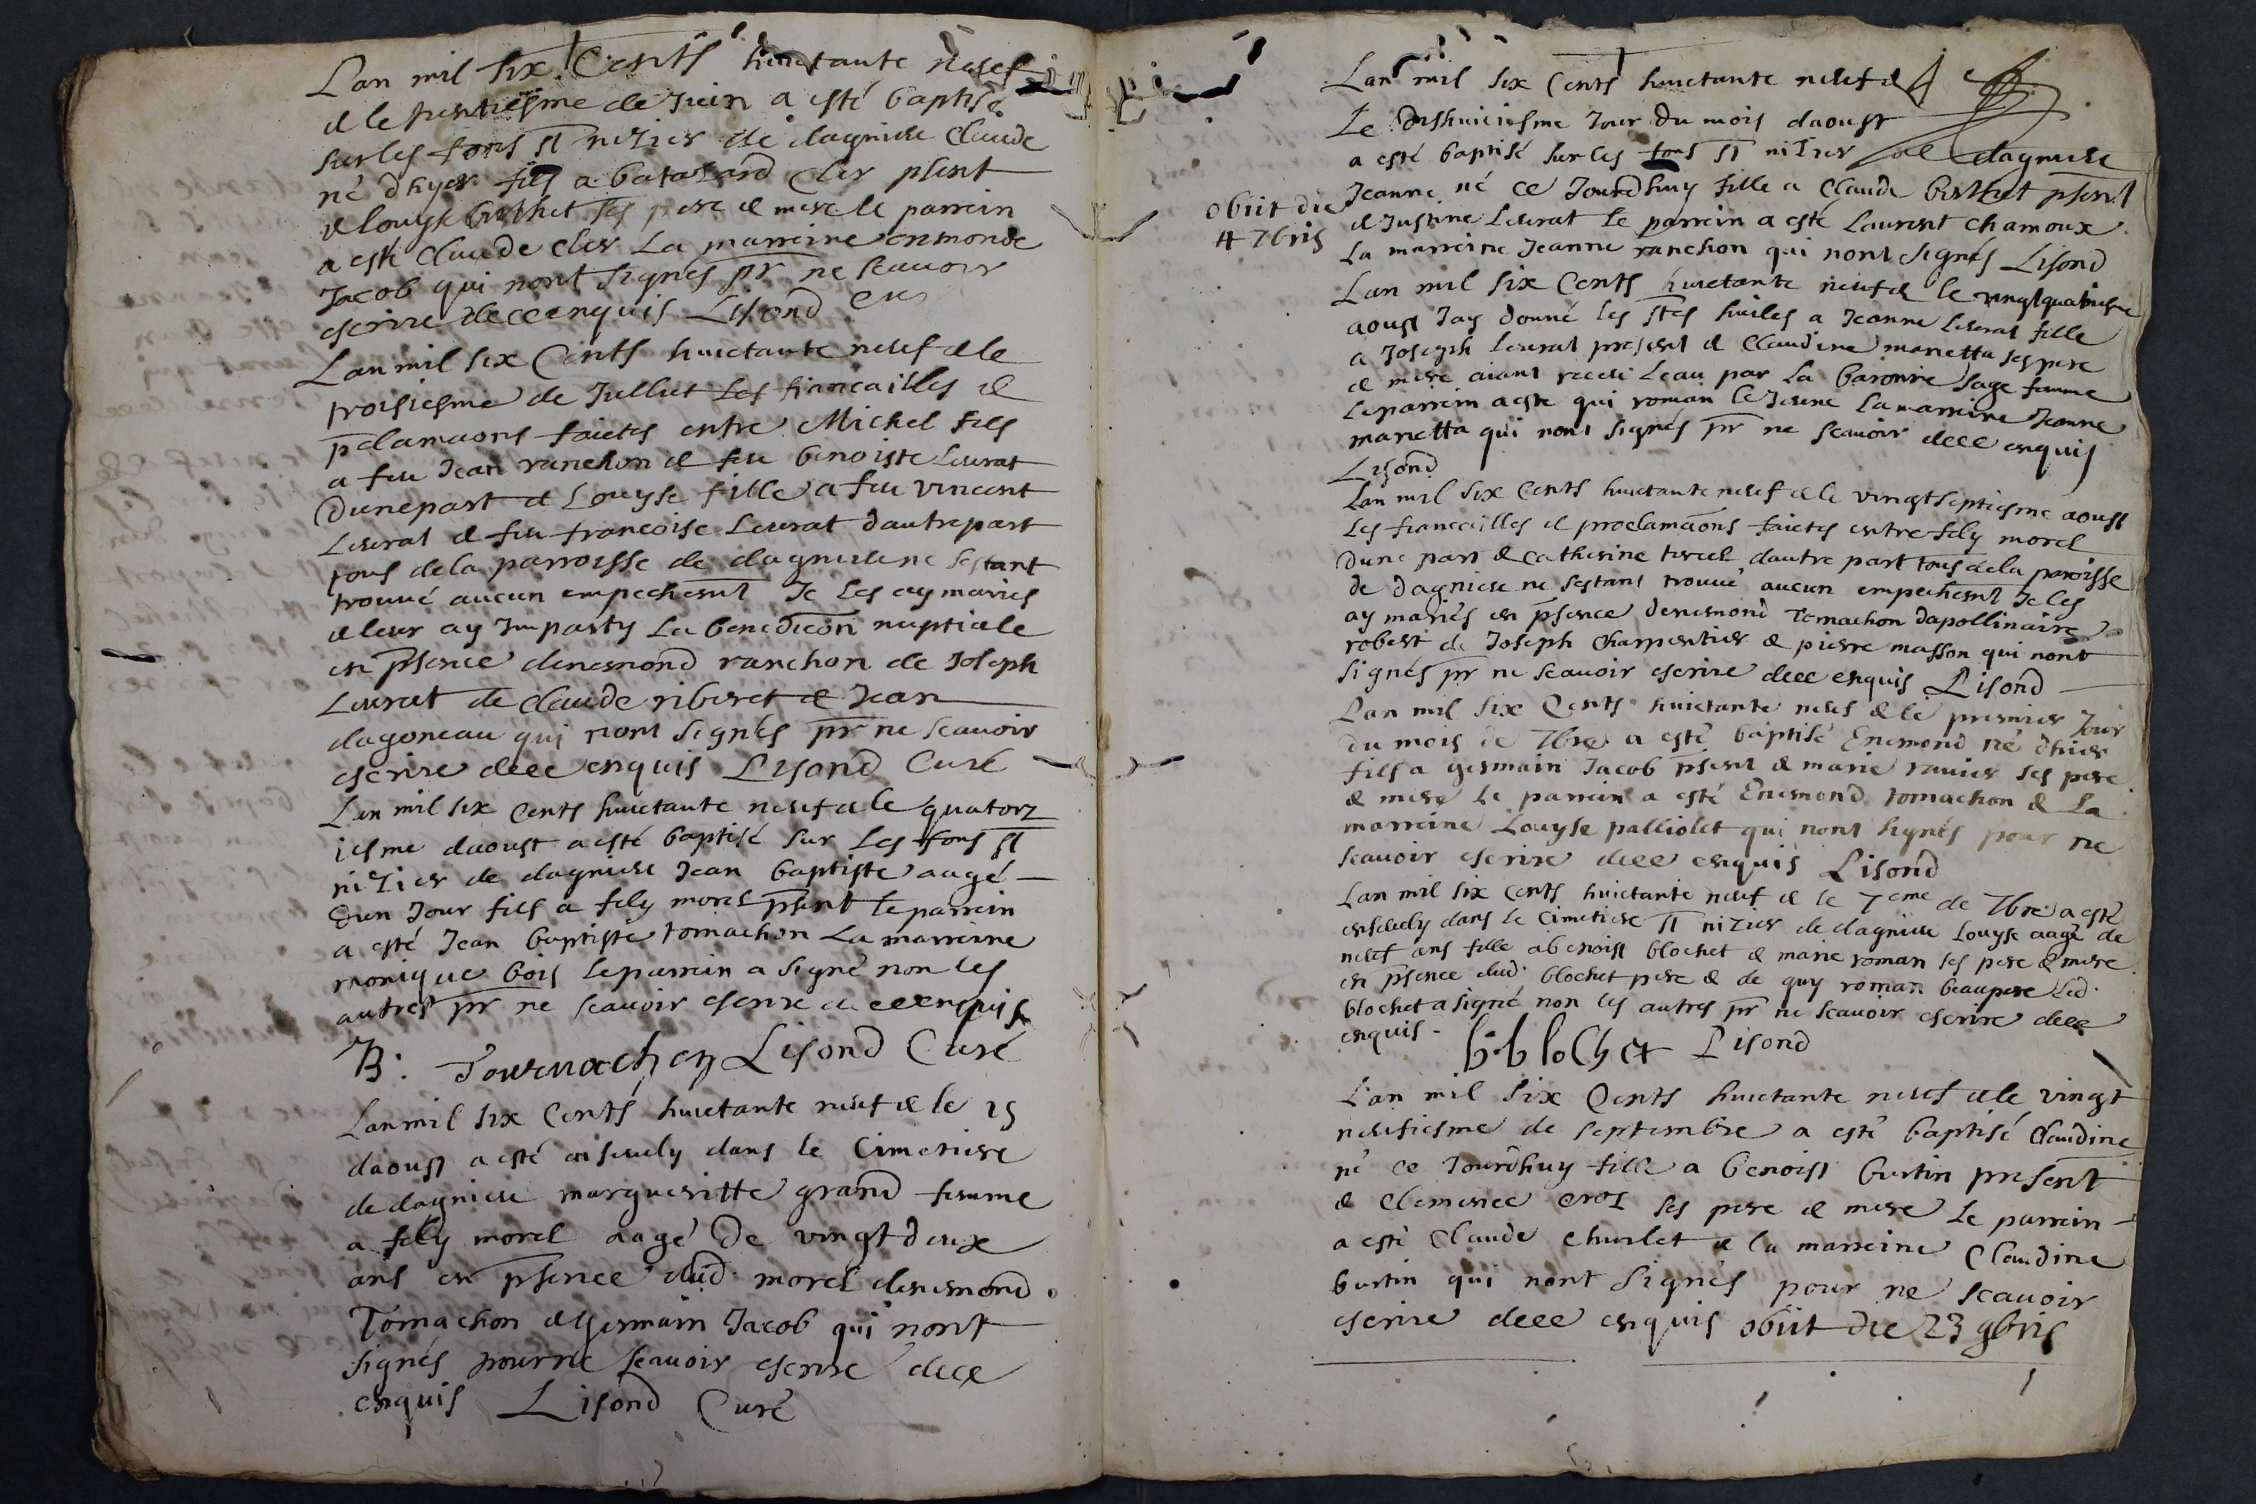 Lan mil six Cents huictante neuf
& le trentiesme de Juin a esté baptisé
sur les fons st nizier de dagnieu Claude
né dhyer fils a batazard Cler psent
& louyse berthet ses pere & mere le parrein
a esté Claude Cler La marreine enimonde
Jacob qui nont signes pr ne scauoir
escrire dece enquis Lisond Cu
Lan mil six Cents huictante neuf & le
troisiesme de Jullut Les fiancailles &
pclamaons faictes entre Michel fils
a feu Jean ranchon & feu benoiste Leurat
Dune part & Louyse fille a feu vincent
Leurat & feu francoise Leurat dautre part
tous de la parroisse de dagnieu ne sestant
trouué aucun empechesmt Je Les ay mariés
& leur ay Imparty La benediçon nuptiale
en psence denesmond ranchon de Joseph
Leurat de Claude riberet & Jean
dagoneau qui nont signés pr ne scauoir
escrire dece enquis Lisond Curé
Lan mil six cents huictante neuf & le quatorz
iesme daoust a esté baptisé sur Les fons st
nizier de dagnieu Jean baptiste aagé
Dun Jour fils a fely morel psent le parrein
a esté Jean baptiste tomachon La marreine
monique bois le parrein a signé non les
autres pr ne scauoir escrire de ce enquis
B: Tournachon Lisond Curé
Lan mil six Cents huictante neuf & le 15
daoust a esté enseuely dans le Cimetiere
de dagnieu margueritte grand femme
a fely morel aagé De vingt deux
ans en psence dud. morel denesmond
Tomachon & germain Jacob qui nont
signés pour ne scauoir escrire dece
enquis Lisond Curé
Lan mil six Cents huictante neuf &
Le dixhuiciesme Jour du mois daoust
a esté baptisé sur les fons st nizier de dagnieu
Jeanne né ce Jourdhuy fille a Claude berthet psent
& Justine Leurat le parrein a esté Laurent chamoux
La marreine Jeanne ranchon qui nont signés Lisond
obiit die
4 7bris
Lan mil six Cents huictante neuf & le vingt quatriesme
aoust Jay donné les stes huiles a Jeanne leurat fille
a Joseph leurat present & Claudine marietta ses pere
& mere aiant receu Leau par La baronne sage femme
Le parrein a este qui roman le Jeune La marreine Jeanne
marietta qui nont signés pr ne scauoir dece enquis
Lisond
Lan mil six Cents huictante neuf & le vingtseptiesme aoust
Les fiancailles & proclamaons faictes entre fely morel
Dune part & catherine tercel dautre part tous de la paroisse
de dagnieu ne sestant trouué aucun empechesmt Je les
ay mariés en psence denesmond Tomachon dapollinaire
robert de Joseph Charpentier & pierre masson qui nont
signés pr ne scauoir escrire dece enquis Lisond
Lan mil six Cents huictante neuf & le premier Jour
du mois de 7bre a esté baptisé Enesmond né dhier
fils a germain Jacob psent & marie rauier ses pere
& mere le parrein a esté Enesmond tomachon & La
marreine Louyse palliolet qui nont signés pour ne
scauoir escrire dece enquis Lisond
Lan mil six cents huictante neuf & le 7eme de 7bre a esté
enseuely dans le Cimetiere st nizier de dagnieu Louyse aagé de
neuf ans fille a benoist blochet & marie roman ses pere & mere
en psence dud. blochet pere & de guy roman beaupere led.
blochet a signé non les autres pr ne scauoir escrire dece
enquis. b. bloChet Lisond
Lan mil six Cents huictante neuf & le vingt
neufiesme de septembre a esté baptisé Claudine
né ce Jourdhuy fille a benoist burtin present
& Clemence croz ses pere & mere le parrein
a esté Claude churlet & la marreine Claudine
burtin qui nont signés pour ne scauoir
escrire dece enquis obiit die 23 9bris